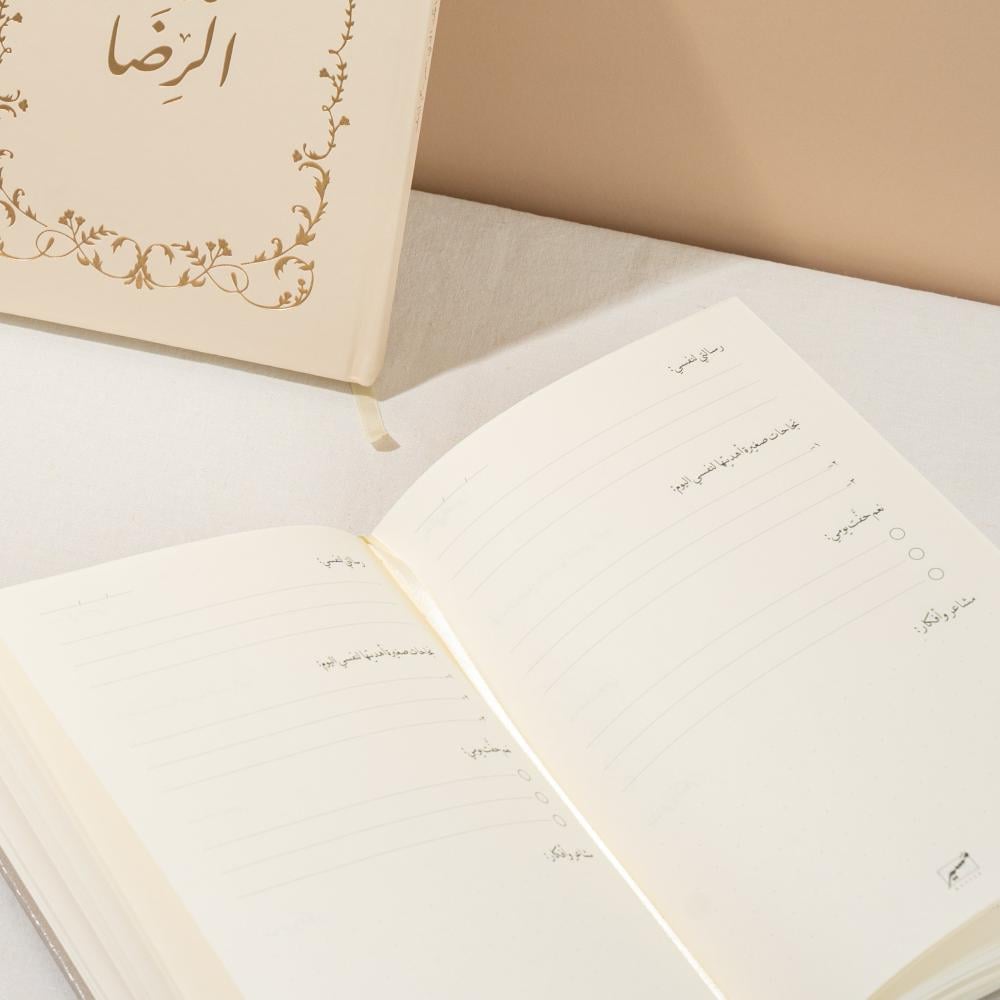 الرِّضَا
رسالتي لنفسي:
نجاحات صغيرة أهديتها لنفسي اليوم:
١-
٢-
٣-
نعم حفّت يومي:
مشاعر وأفكار:
مسير
رسالتي لنفسي:
نجاحات صغيرة أهديتها لنفسي اليوم:
١-
٢-
٣-
نعم حفّت يومي:
مشاعر وأفكار: